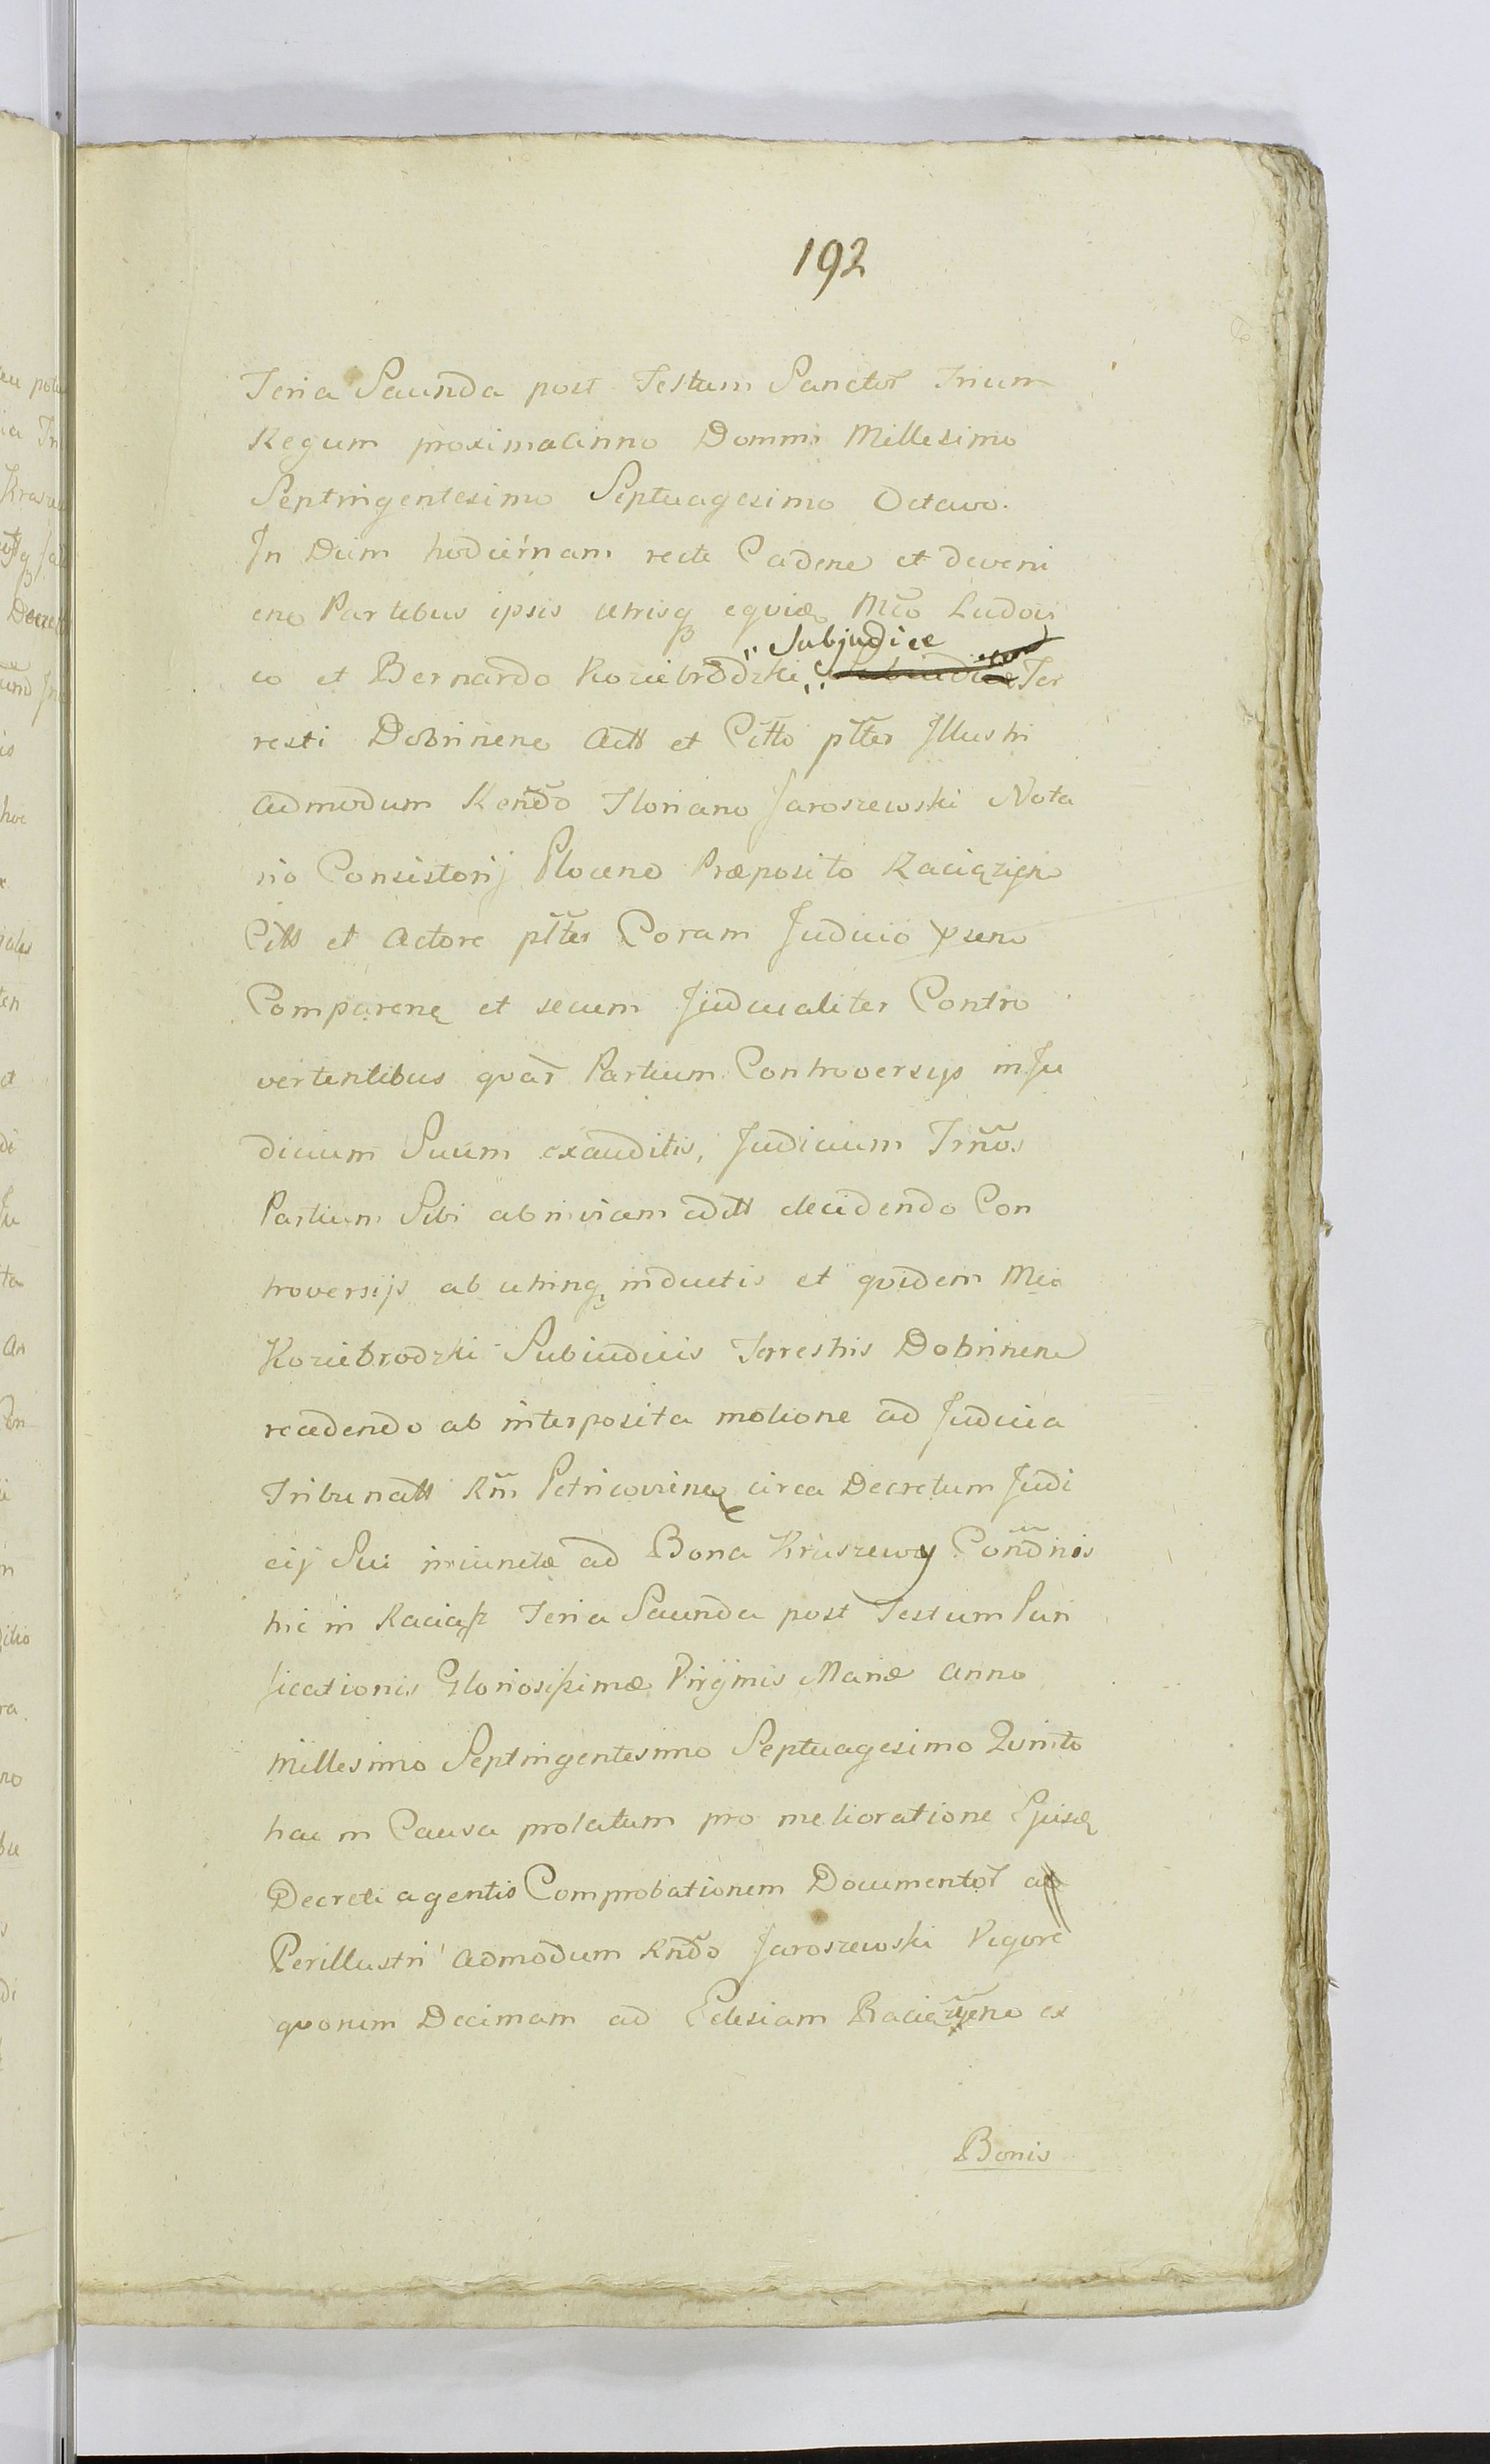 192
Feria Secunda post Festum Sanctor Trium
Regum proxima Anno Domini Millesimo
Septingentesimo Septuagesimo Octavo.
In Diem hodiernam recte Caden et deveni
en Partibus ipsis utrisq eqviae Mco Ludovi
co et Bernardo Koziebrodzki Subjudice Ter
resti Dobrinen Actt et Citto ptter Illustri
admodum Rendo Floriano Jaroszewski Nota
rio Consistorij Plocen Præposito Raciązien
Citt et Actore ptter Coram Judicio psen
Comparen et secum Judicialiter Contro
vertentibus qvar Partium Controversijs in Ju
dicium Suum exauditis, Judicium Trnos
Partium Sibi abinvicem addtt decidendo Con
troversijs ab utrinq inductis et qvidem Mci
Koziebrodzki Subiudicis Terrestris Dobrinen
recedendo ab interposita motione ad Judicia
Tribunatt Rni Petricovien circa Decretum Judi
cij Sui iniunctæ ad Bona Kraszewy Condnis
hic in Raciąż Feria Secunda post Festum Puri
ficationis Gloriosissimæ Virginis Mariæ Anno
Millesimo Septingentesimo Septuagesimo Qvinto
hac in Causa prolatum pro melioratione Ejusd
Decreti agentis Comprobationem Documentor ab
Perillustri admodum Rndo Jaroszewski Vigore
qvorum Decimam ad Eclesiam Raciązien ex
Bonis